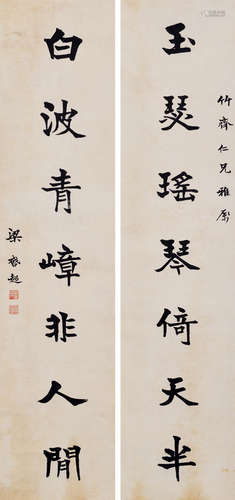 竹齋仁兄雅屬
玉瑟瑤琴倚天半
白波青嶂非人間
梁啟超